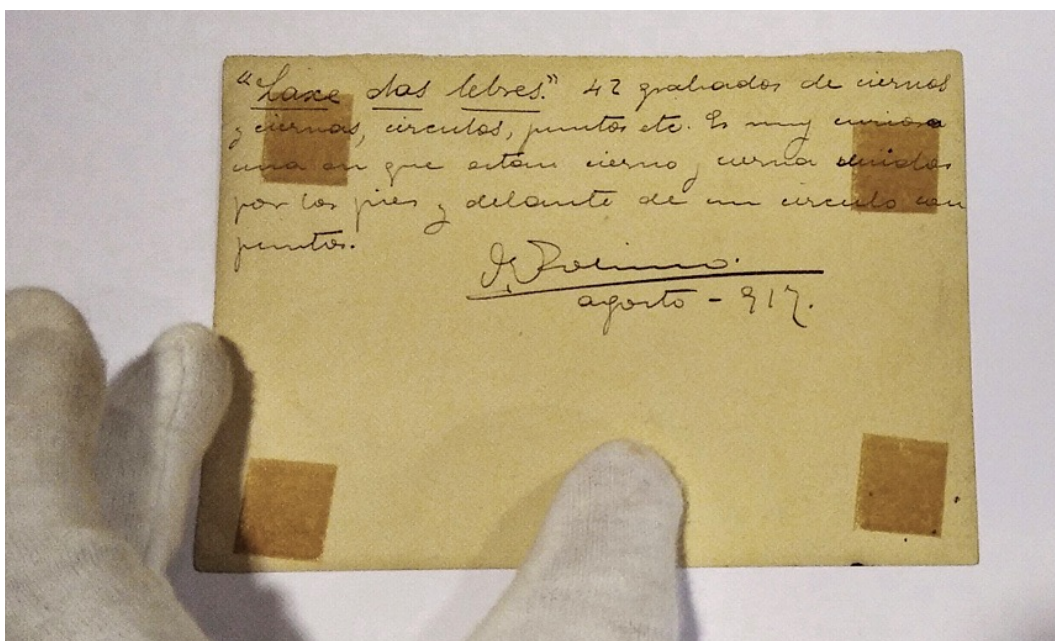 "Laxe das lebres." 42 grabados de ciervos
y ciervas, circulos, puntos etc. Es muy curiosa
una en que están ciervo y cierva unidos
por los pies y delante de un circulo con
puntos.
agosto - 917.